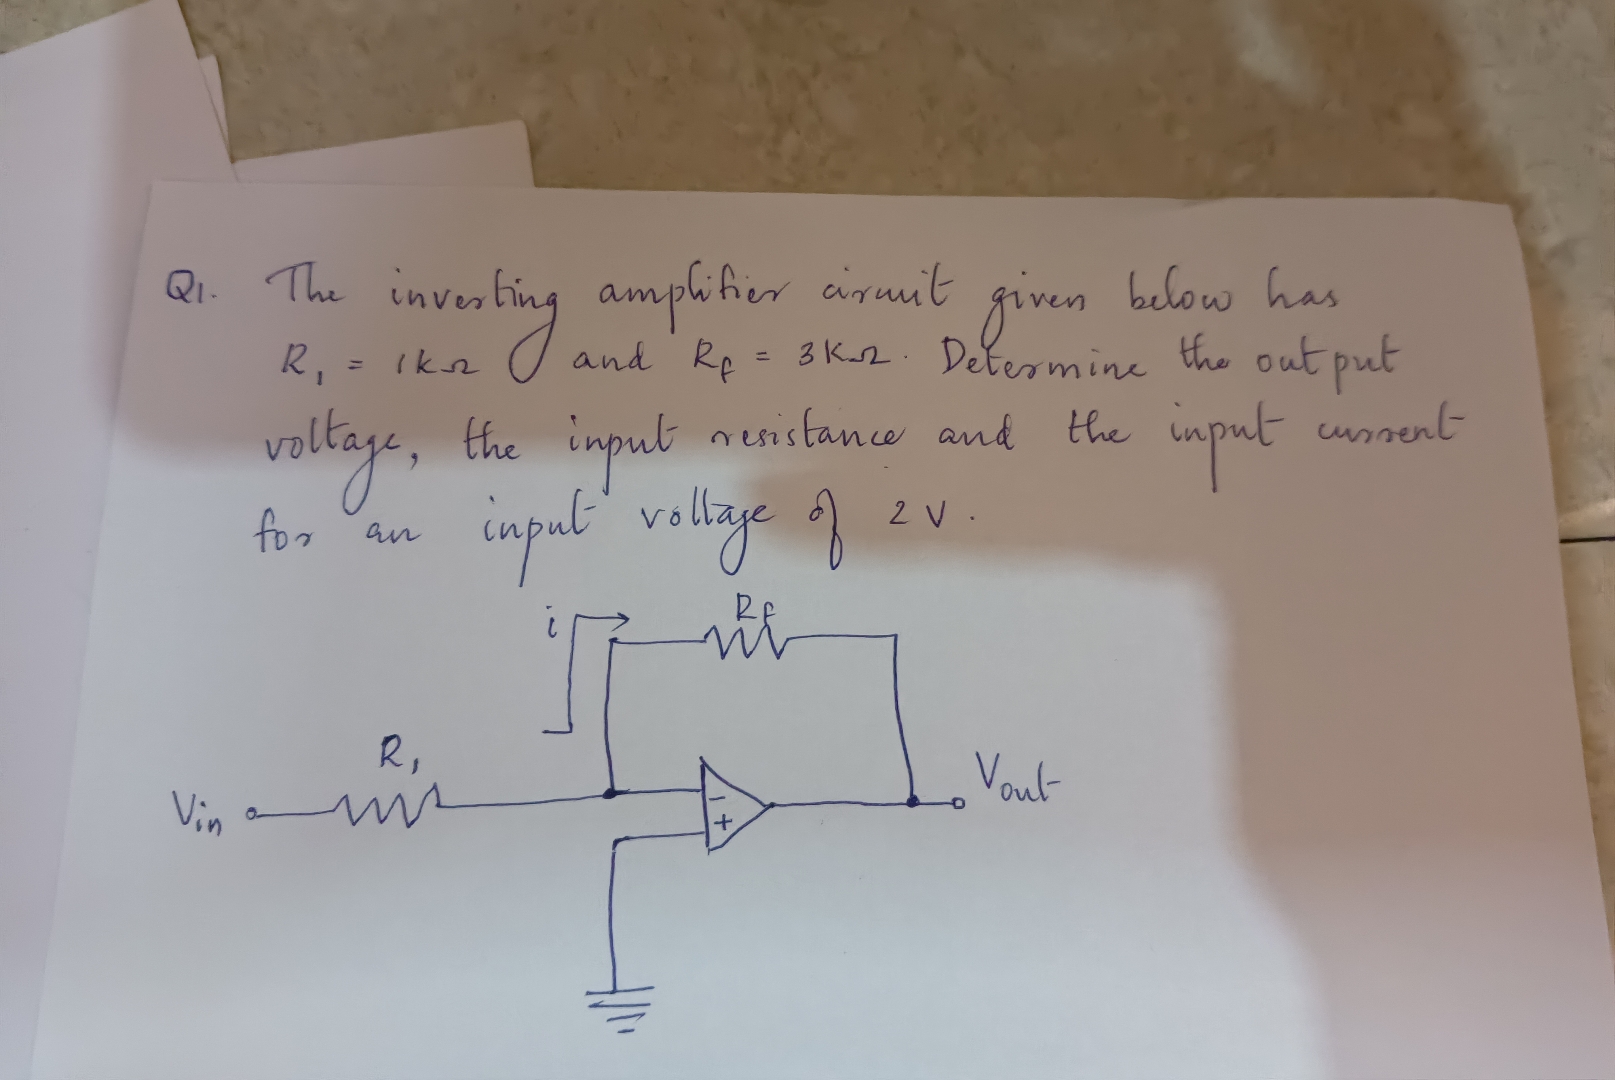 Q1. The inverting amplifier circuit given below has
R₁ = 1kΩ and Rf = 3KΩ. Determine the output
voltage, the input resistance and the input current
for an input voltage of 2 V.
i Rf
R₁
Vin - Vout
+